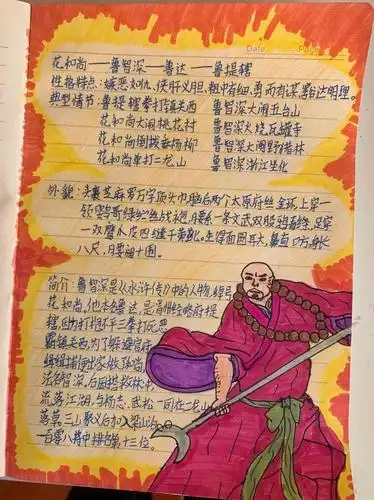 Date.
花和尚——鲁智深——鲁达——鲁提辖
性格特点：嫉恶如仇、侠肝义胆、粗中有细、勇而有谋、豁达明理
典型情节：鲁提辖拳打镇关西 鲁智深大闹五台山
花和尚大闹桃花村 鲁智深火烧瓦罐寺
花和尚倒拔垂杨柳 鲁智深大闹野猪林
花和尚单打二龙山 鲁智深浙江坐化
外貌：头裹芝麻罗万字顶头巾，脑后两个太原府丝金环，上穿一
领鹦哥绿纻丝战袍，腰系一条文武双股鸦青绦，足穿
一双鹰爪皮四缝干黄靴。生得面圆耳大，鼻直口方，身长
八尺，腰阔十围。
简介：鲁智深是《水浒传》中的人物，绰号
花和尚。他本名鲁达，是渭州经略府提
辖，因打抱不平三拳打死恶
霸镇关西，为了躲避官府
缉捕便出家做了和尚，
法名智深。后因搭救林冲，
流落江湖，与杨志、武松一同在二龙山
落草。三山聚义后加入梁山泊，
一百零八将中排名第十三位。